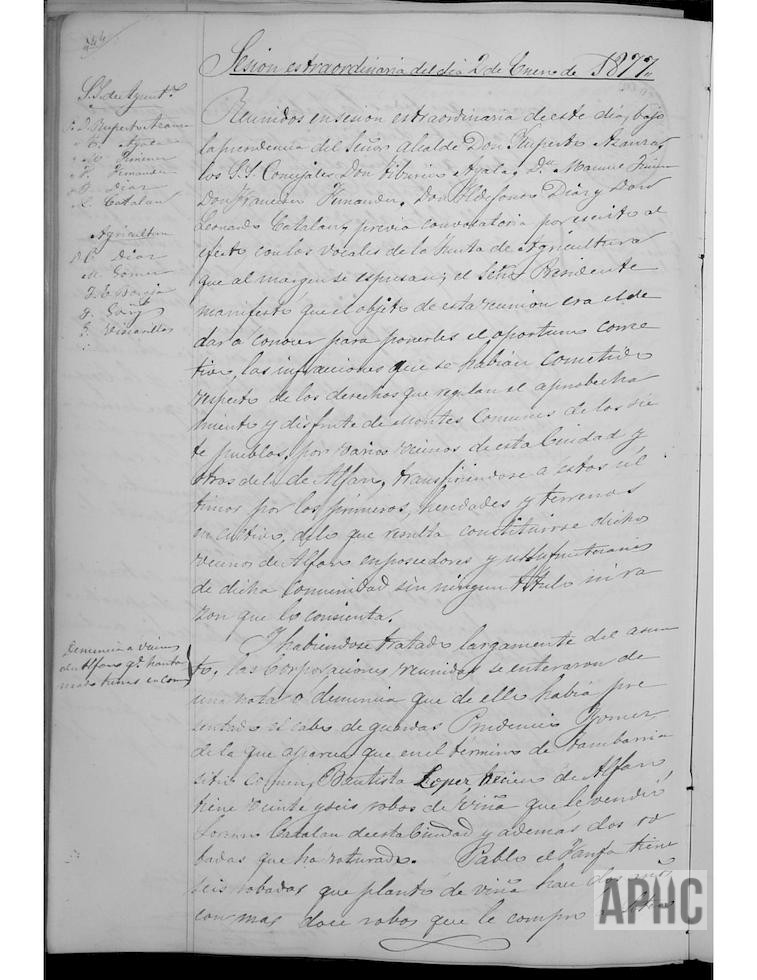 244
Sesion extraordinaria del dia 2 de Enero de 1877.
S.S. de Ayunt.º
P. D. Ruperto Azanza
" T. Ayala
" M. Jimenez
" F. Fernandez
" I. Diaz
" L. Catalan
Agricultura
D. P. Diaz
M. Gomez
F.
G.
Reunidos en sesion extraordinaria de este dia, bajo
la presidencia del Señor Alcalde Don Ruperto Azanza,
los S.S. Concejales Don Tiburcio Ayala, Dn. Manuel Jimenez
Don Francisco Fernandez, Don Ildefonso Diaz y Don
Leonardo Catalan, previa convocatoria por escrito al
efecto con los vocales de la Junta de Agricultura
que al margen se espresan; el Señor Presidente
manifestó que el objeto de esta reunion era el de
dar a conocer para ponerles el oportuno corrective
tivo, las infracciones que se habian cometido
respecto de los derechos que regulan el aprobecha
miento y disfrute de Montes Comunes de los sie
te pueblos, por varios vecinos de esta Ciudad y
otros de la de Alfaro, transfiriendose a estos ul
timos por los primeros, heredades y terrenos
en cultivo, de lo que resulta constituirse dichos
vecinos de Alfaro en poseedores y usufructuarios
de dicha Comunidad sin ningun titulo ni ra
zon que lo consienta.
Denuncia a vecinos
de Alfaro qe. han to
mado tierras en comun
Y habiendose tratado largamente del asun
to, las Corporaciones reunidas se enteraron de
una nota o denuncia que de ello habia pre
sentado el cabo de guardas Prudencio Gomez,
de la que aparece que en el término de Tambarria
sitio comun, Bautista Lopez vecino de Alfaro
tiene veinte y seis robos de viña que le vendió
Catalan de esta Ciudad y ademas dos ro
badas que ha roturado. Pablo el tiene
seis robadas que plantó de viña hace dos años
con mas doce robos que le compró
APHC